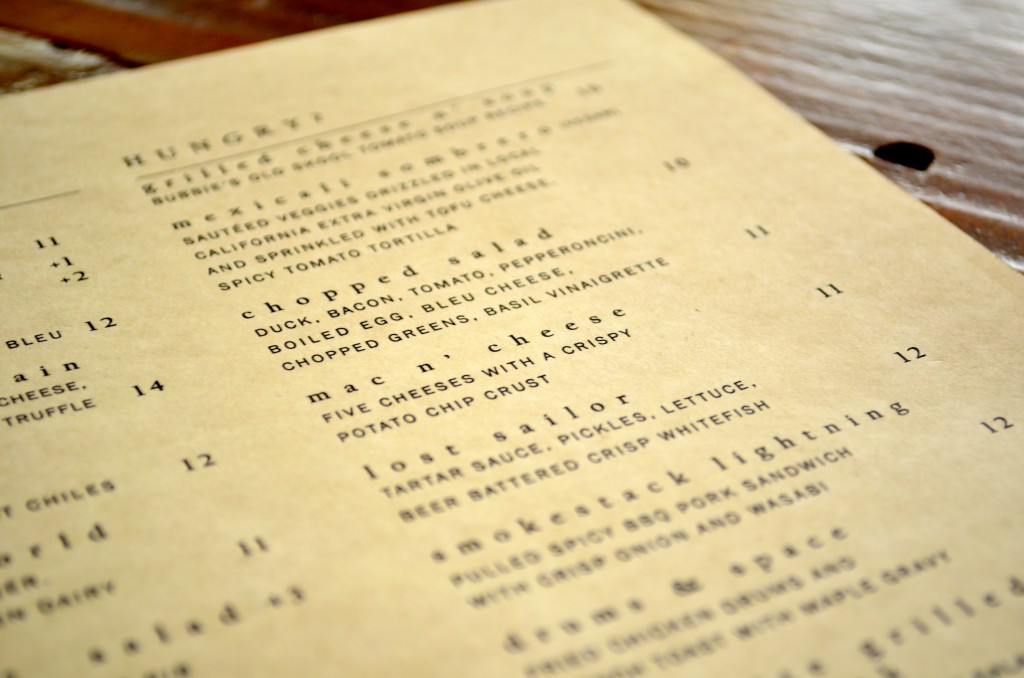 HUNGRY?
grilled cheese n' soup 10
BUBBIE'S OLD SKOOL TOMATO SOUP
mexicali sombrero
SAUTÉED VEGGIES DRIZZLED IN LOCAL 10
CALIFORNIA EXTRA VIRGIN OLIVE OIL
AND SPRINKLED WITH TOFU CHEESE
SPICY TOMATO TORTILLA
chopped salad 11
DUCK, BACON, TOMATO, PEPPERONCINI,
BOILED EGG, BLEU CHEESE,
CHOPPED GREENS, BASIL VINAIGRETTE
mac n' cheese 11
FIVE CHEESES WITH A CRISPY
POTATO CHIP CRUST
lost sailor 12
TARTAR SAUCE, PICKLES, LETTUCE,
BEER BATTERED CRISP WHITEFISH
smokestack lightning 12
PULLED SPICY BBQ PORK SANDWICH
WITH CRISP ONION AND WASABI
drums & space
FRIED CHICKEN DRUMS AND
TOAST WITH MAPLE GRAVY
grilled
11
+1
+2
BLEU 12
ain
CHEESE,
TRUFFLE 14
12
T CHILES
orld 11
DAIRY
salad +3